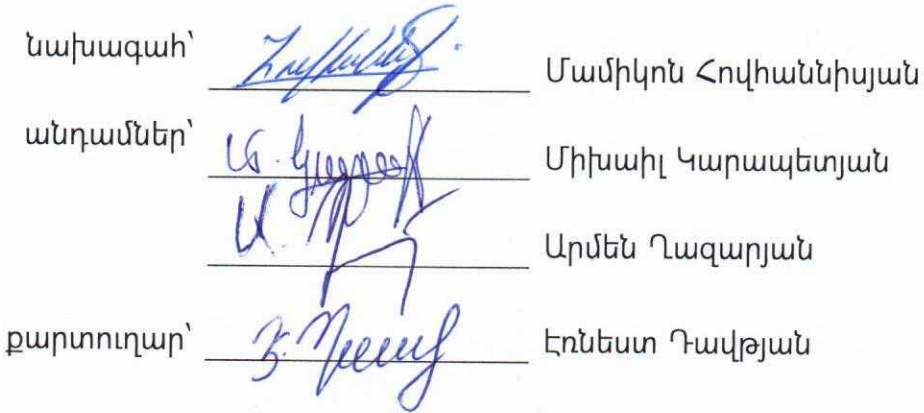 նախագահ՝ Մամիկոն Հովհաննիսյան
անդամներ՝ Միխաիլ Կարապետյան
Արմեն Ղազարյան
քարտուղար՝ Էռնեստ Դավթյան